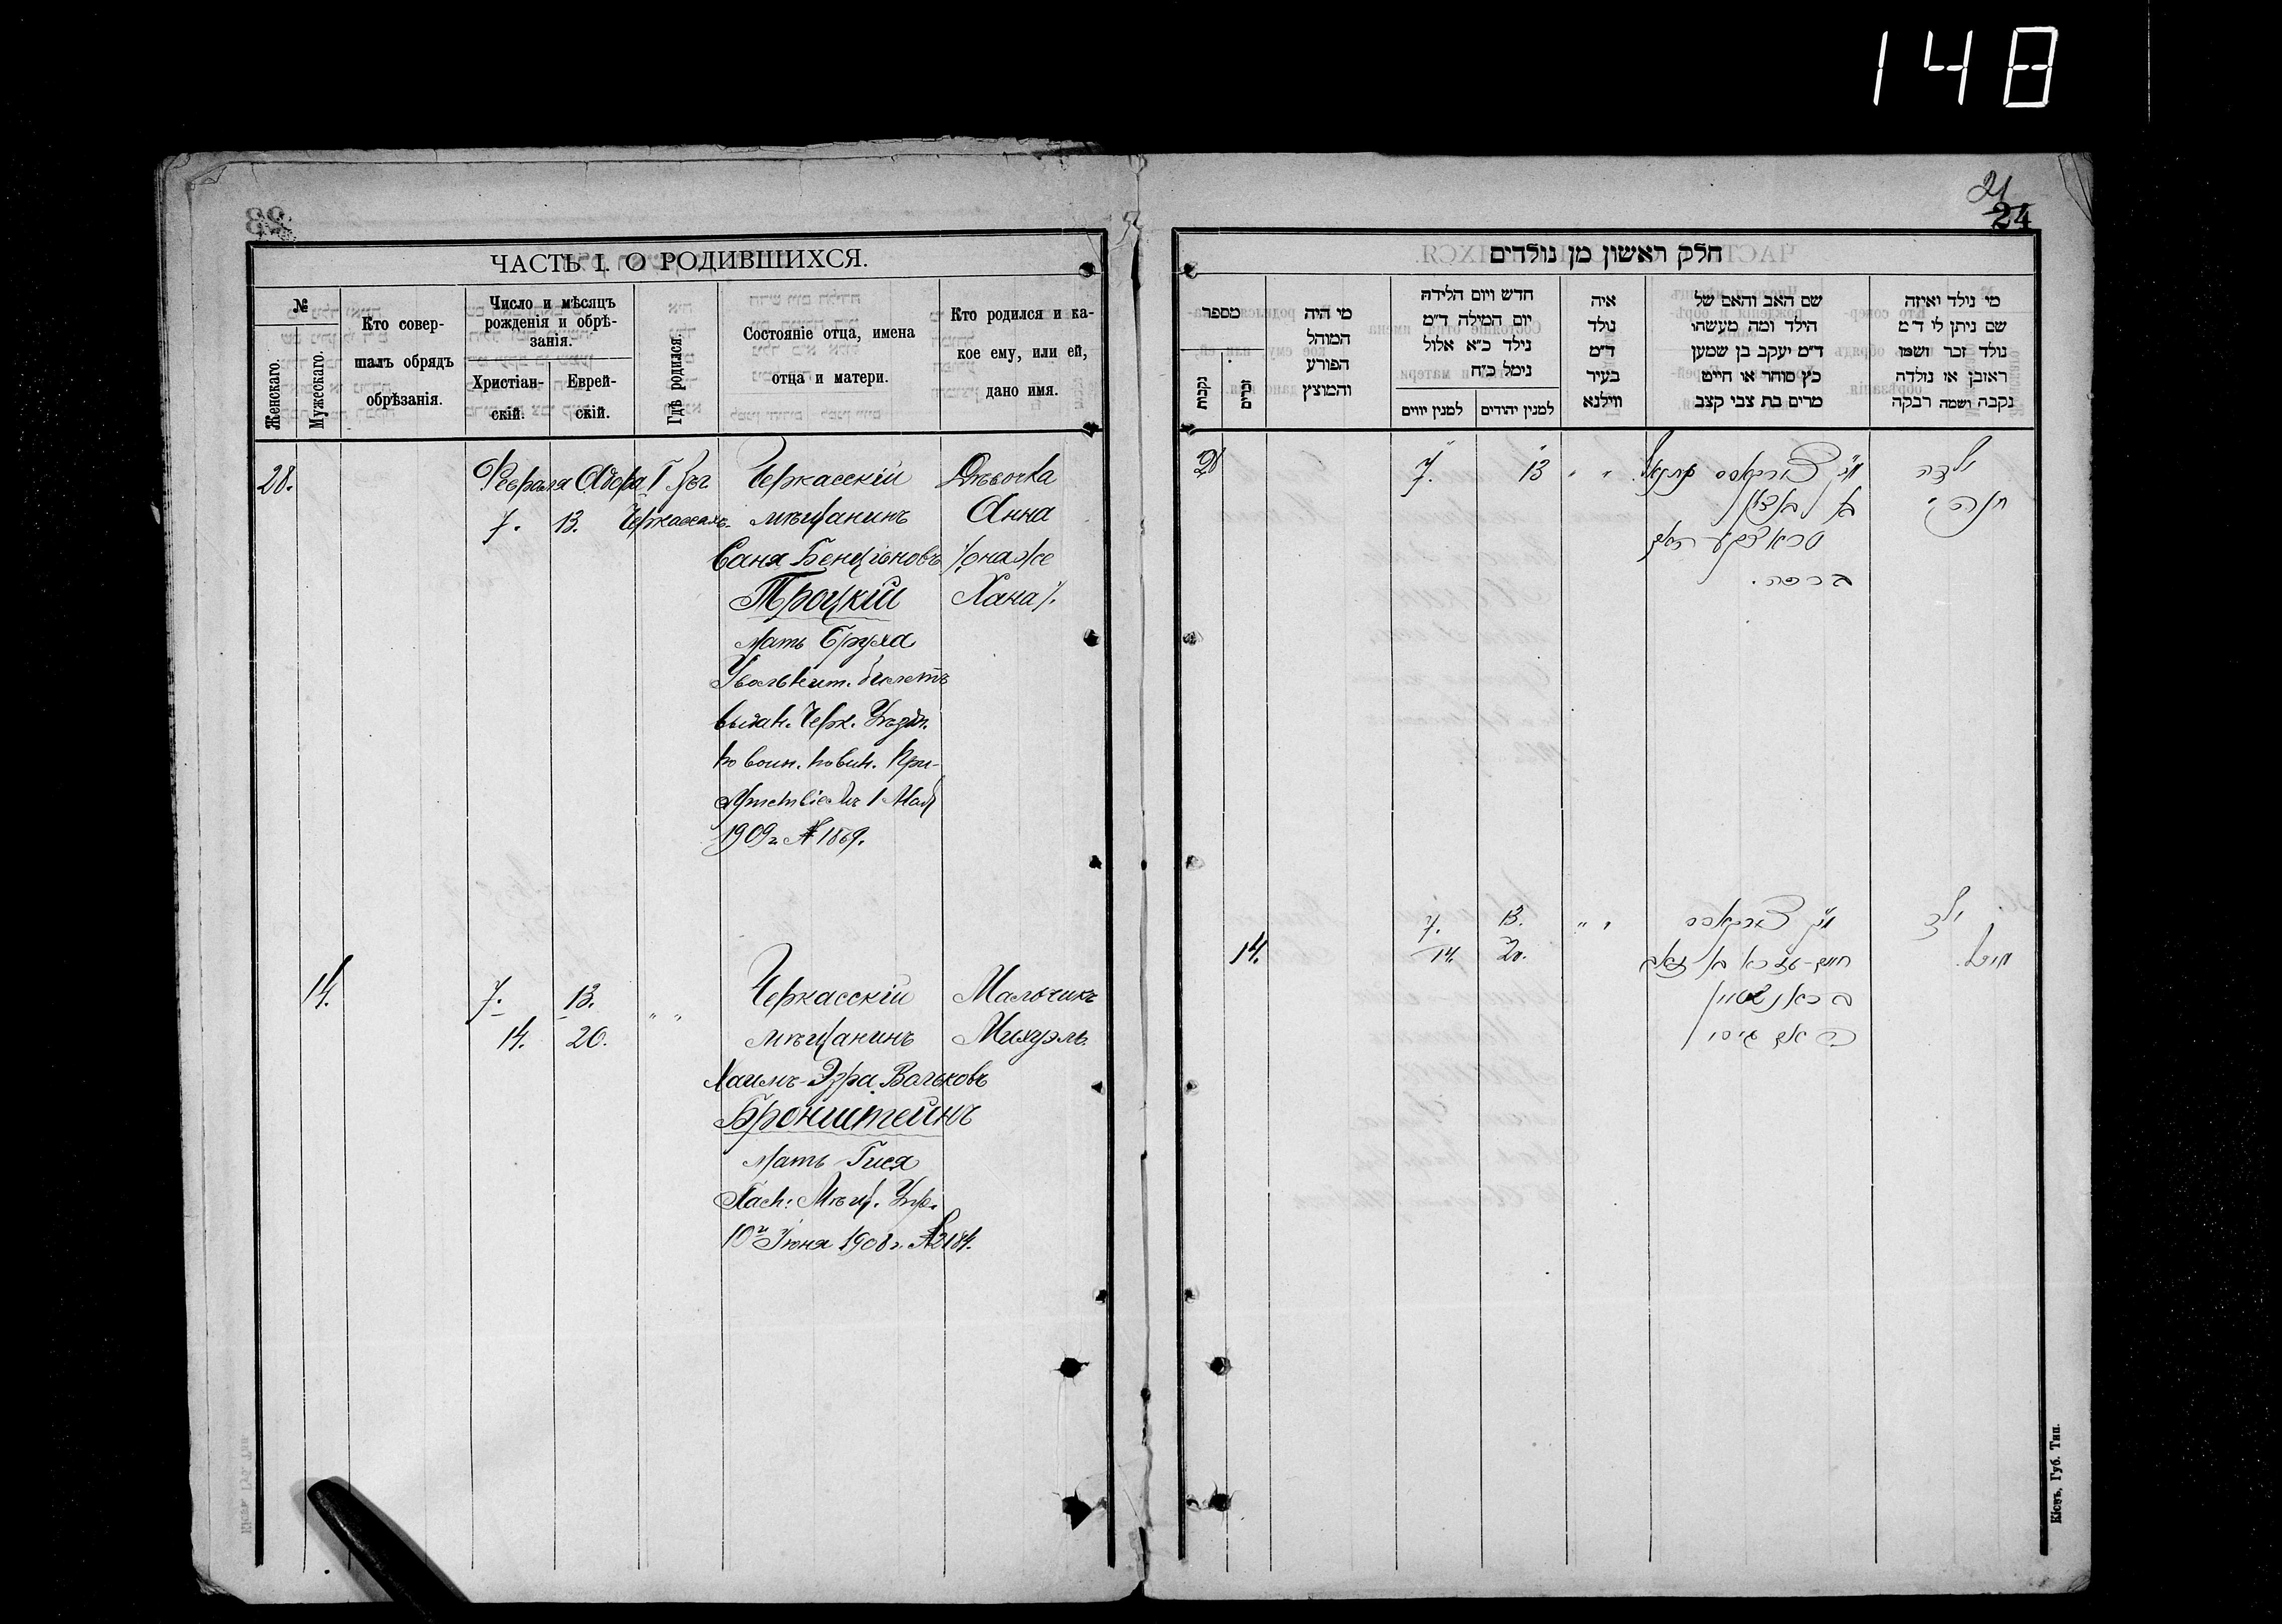 148
ЧАСТЬ I. О РОДИВШИХСЯ.
№
Женскаго.
Мужескаго.
Кто совер-
шалъ обрядъ
обрѣзанія.
Число и мѣсяцъ
рожденія и обрѣ-
занія.
Христіан-
скій.
Еврей-
скій.
Гдѣ родился.
Состояніе отца, имена
отца и матери.
Кто родился и ка-
кое ему, или ей,
дано имя.
28. Февраля Адара Черкасскій Дѣвочка
7. 13. Черкассахъ. мѣщанинъ Анна
Саня Бенціоновъ /она же
Троцкій Хана/.
Мать Бруха
Увольнит. билетъ
выдан. Черк. Уѣздн.
по воин. повин. При-
сутствіемъ 1 Мая
1909 г. № 1869.
14. 7. 13. " " Черкасскій Мальчикъ
14. 20. мѣщанинъ Михуэль.
Хаимъ-Эзра Вольковъ
Бронштейнъ
Мать Гися
Пасп. Мѣщ. Упр.
10 Іюня 1908 г. № 2184.
21
24
חלק ראשון מן נולדים
מספר
נקבות
זכרים
מי היה
המוהל
הפורע
והמוצץ
חדש ויום הלידה
יום המילה ד״מ
נילד כ״א אלול
נימל כ״ח
למנין יווים
למנין יהודים
איה
נולד
ד״מ
בעיר
ווילנא
שם האב והאם של
הילד ומה מעשהו
ד״מ יעקב בן שמען
כץ סוחר או חייט
מרים בת צבי קצב
מי נולד ואיזה
שם ניתן לו ד״מ
נולד זכר ושמו
ראובן או נולדה
נקבה ושמה רבקה
28 7. 13 " " ילדה
חנה
14. 7. 13. " " ילד
14. 20.
Кіевъ, Губ. Тип.